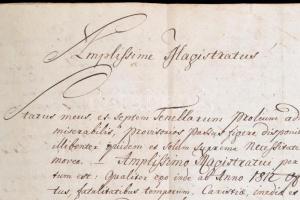 Amplissime Magistratus
Status meus, et septem Tenellarum Prolium ad
miserabilis, provisores passus figere disponit
illibenter quidem et solum Supremæ Necessitatis
morea. — Amplissimo Magistratui per
tum est: Qualiter ego inde ab Anno 1812
tus, fatalitatibus temporum. Caristiæ, inediæ et